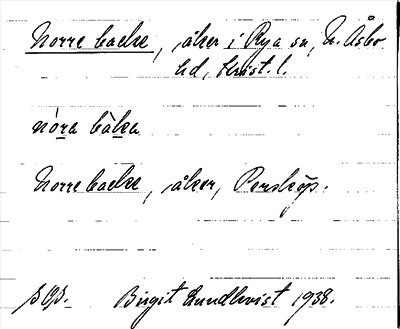 Norre backe, åker i Rya sn, N. Åsbo
hd, Krist. l.
nòra bàka
Norre backe, åker, Perstorp.
Birgit Lundkvist 1938.